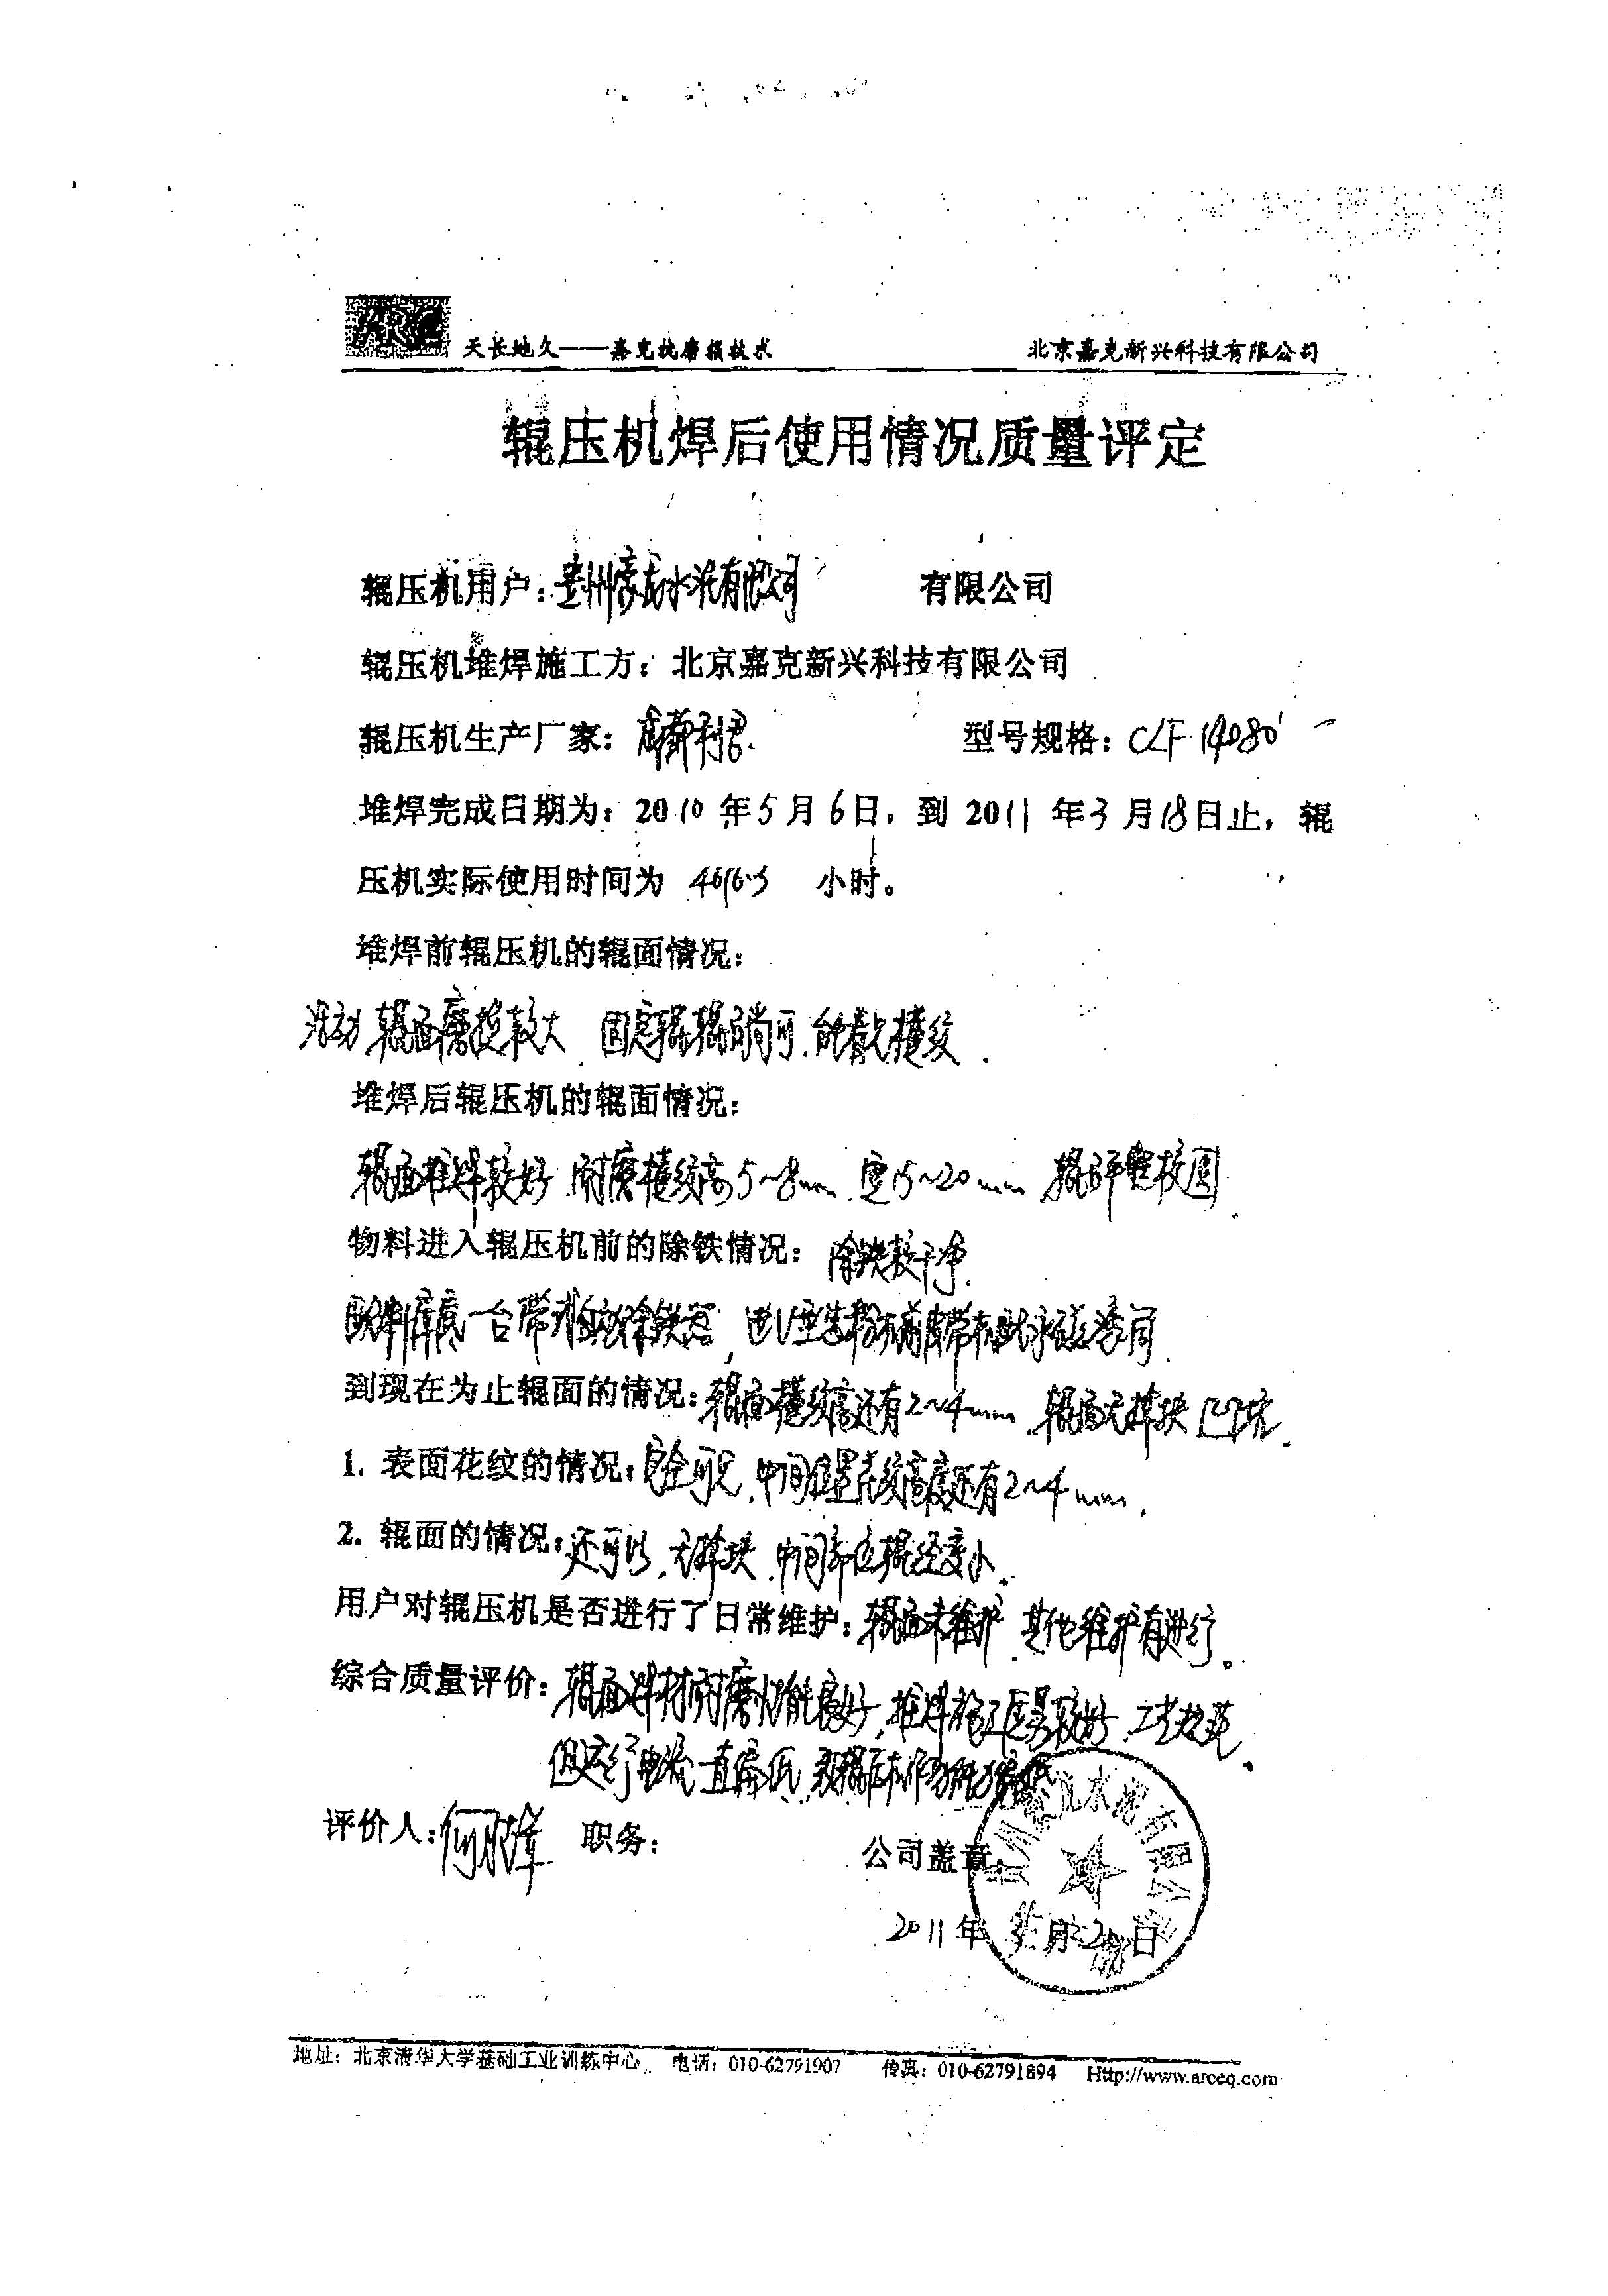 ARC 天长地久——嘉克抗磨损技术 北京嘉克新兴科技有限公司
辊压机焊后使用情况质量评定
辊压机用户：贵州豪龙水泥有限公司 有限公司
辊压机堆焊施工方：北京嘉克新兴科技有限公司
辊压机生产厂家：成都利君. 型号规格：CLF 14080
堆焊完成日期为：2010年5月6日，到2011年3月18日止，辊
压机实际使用时间为 小时。
堆焊前辊压机的辊面情况：
活动辊面磨损较大 固定辊辊面尚可.
堆焊后辊压机的辊面情况：
辊面堆焊较好 耐磨横纹高5~8mm 宽15~20mm 辊面平整较圆.
物料进入辊压机前的除铁情况：除铁较干净.
一台带 除铁器，
到现在为止辊面的情况：辊面横纹高还有2~4mm 辊面无掉块 凹坑.
1. 表面花纹的情况：完全可见 中间位置花纹高度还有2~4mm.
2. 辊面的情况：还可以, 无掉块 中间部位辊径变小.
用户对辊压机是否进行了日常维护：辊面未维护 其他维护有进行.
综合质量评价：辊面焊材耐磨性能良好, 堆焊施工质量较好
但运行电流一直偏低
评价人： 职务： 公司盖章
2011年 月 日
地址：北京清华大学基础工业训练中心 电话：010-62791907 传真：010-62791894 Http://www.arceq.com